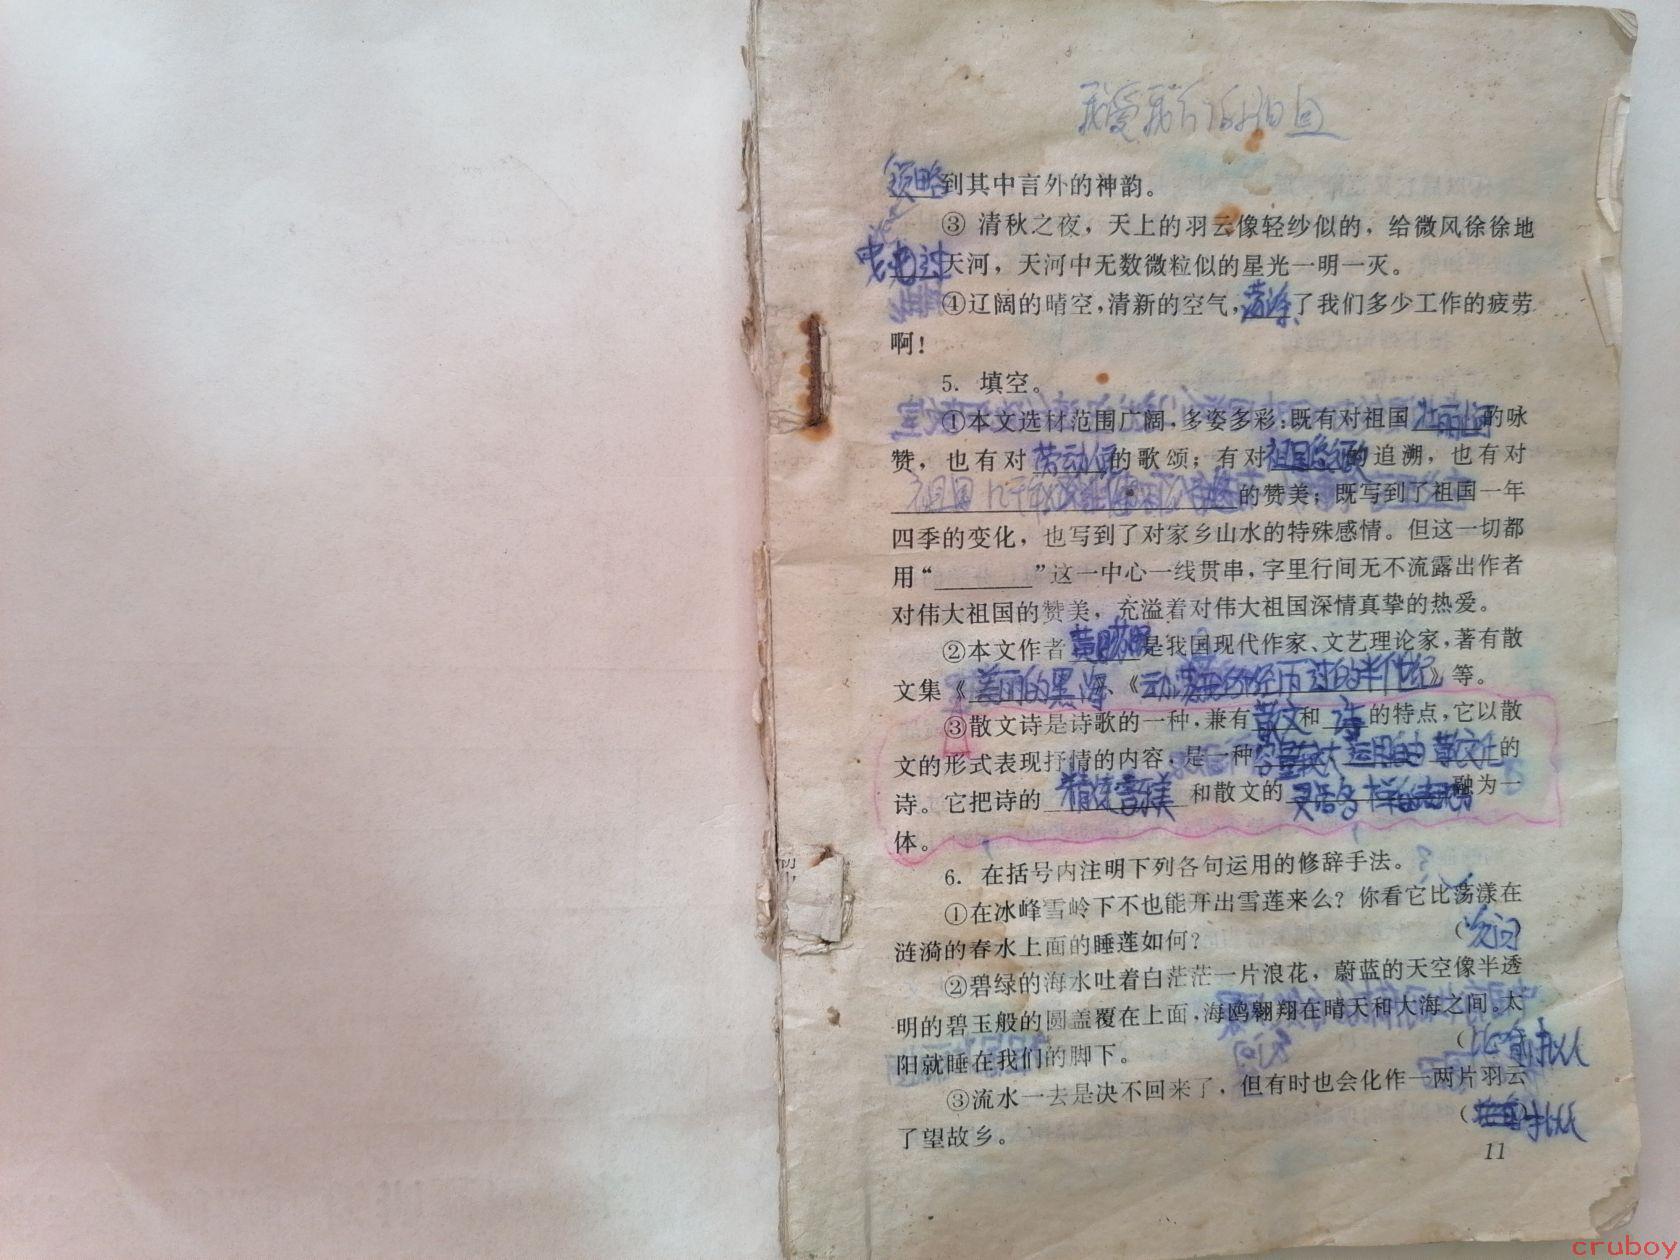 我爱我们的祖国
领略到其中言外的神韵。
③ 清秋之夜，天上的羽云像轻纱似的，给微风徐徐地
天河，天河中无数微粒似的星光一明一灭。
④辽阔的晴空，清新的空气，荡涤了我们多少工作的疲劳
啊！
5. 填空。
①本文选材范围广阔，多姿多彩：既有对祖国的咏
赞，也有对劳动人民的歌颂；有对祖国的追溯，也有对
祖国几千年的赞美；既写到了祖国一年
四季的变化，也写到了对家乡山水的特殊感情。但这一切都
用“________”这一中心一线贯串，字里行间无不流露出作者
对伟大祖国的赞美，充溢着对伟大祖国深情真挚的热爱。
②本文作者黄药眠是我国现代作家、文艺理论家，著有散
文集《美丽的黑海》、《动荡：我所经历过的半世纪》等。
③散文诗是诗歌的一种，兼有散文和诗的特点，它以散
文的形式表现抒情的内容，是一种容量较大运用自由散文化的
诗。它把诗的精炼音乐美和散文的灵活多样的表现力融为一
体。
6. 在括号内注明下列各句运用的修辞手法。
①在冰峰雪岭下不也能开出雪莲来么？你看它比荡漾在
涟漪的春水上面的睡莲如何？（反问）
②碧绿的海水吐着白茫茫一片浪花，蔚蓝的天空像半透
明的碧玉般的圆盖覆在上面，海鸥翱翔在晴天和大海之间。太
阳就睡在我们的脚下。（比喻 拟人
③流水一去是决不回来了，但有时也会化作一两片羽云
了望故乡。（拟人
11
cruboy